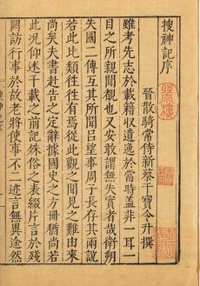 搜神記序
晉散騎常侍新蔡干寶令升撰
雖考先志於載籍收遺逸於當時蓋非一耳一
目之所親聞覩也又安敢謂無失實者哉衛朔
失國二傳互其所聞呂望事周子長存其兩說
若此比類往往有焉從此觀之聞見之難由來
尚矣夫書赴告之定辭據國史之方冊猶尚若
此況仰述千載之前記殊俗之表綴片言於殘
闕訪行事於故老將使事不二迹言無異途然